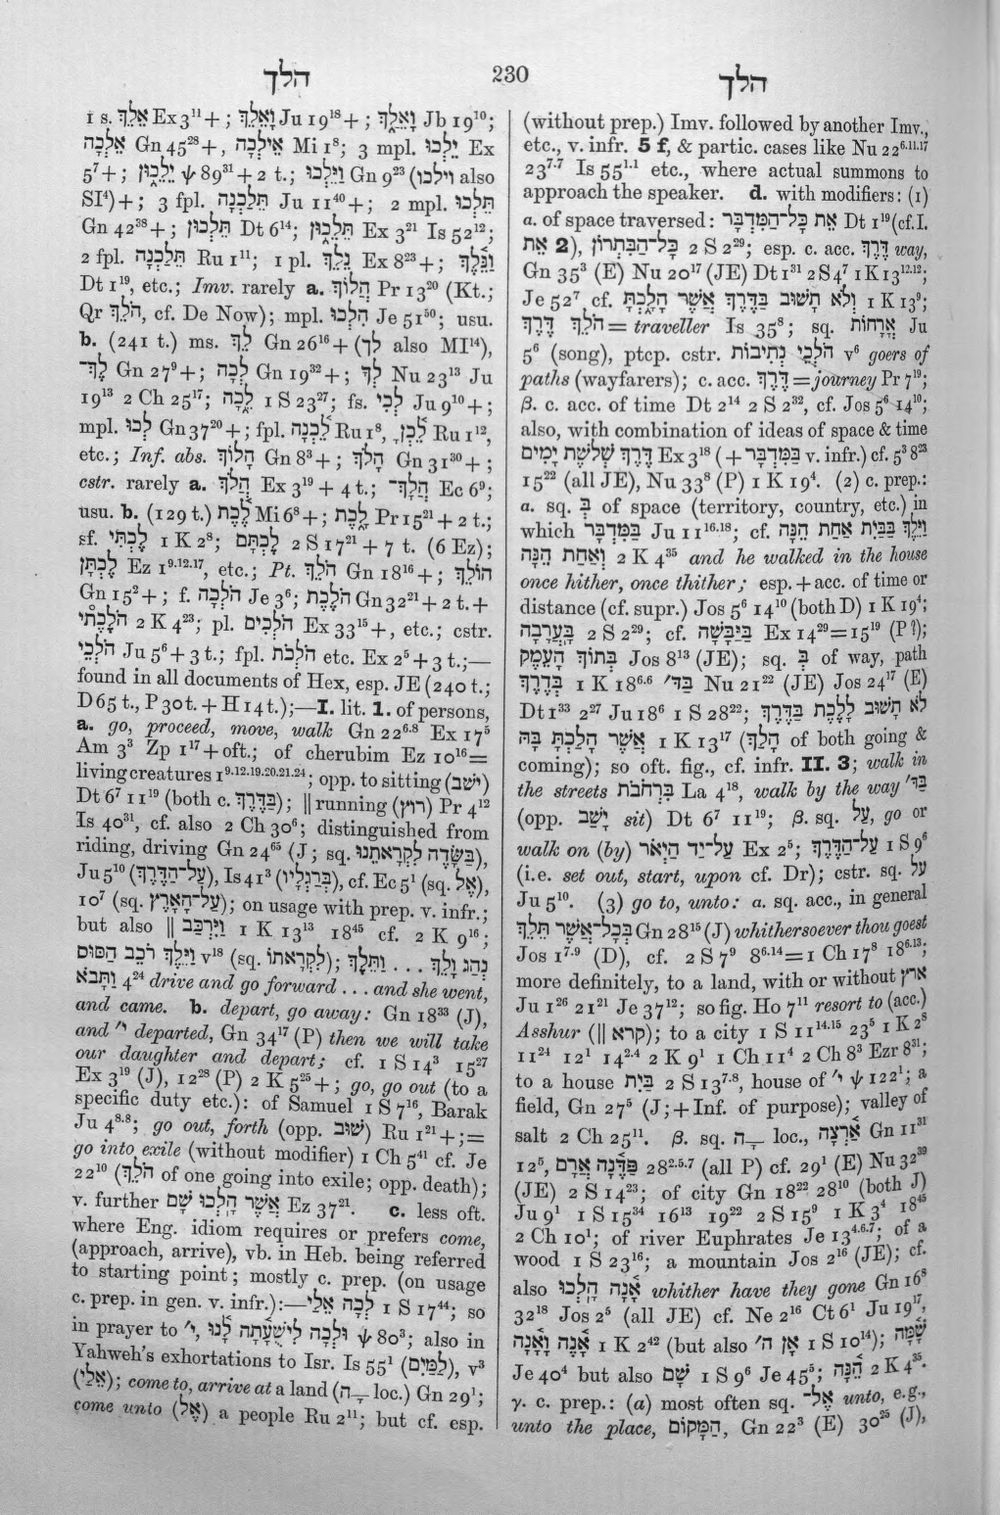 הלך 230 הלך
1 s. אֵלֵךְ Ex 3¹¹+; וָאֵלֵךְ Ju 19¹⁸+; וָאֵלַךְ Jb 19¹⁰;
אֵלְכָה Gn 45²⁸+, אֵילְכָה Mi 1⁸; 3 mpl. יֵלְכוּ Ex
5⁷+; יֵלֵכוּן ψ 89³¹+2 t.; וַיֵּלְכוּ Gn 9²³ (וילכו also
SI⁴)+; 3 fpl. תֵּלַכְנָה Ju 11⁴⁰+; 2 mpl. תֵּלְכוּ
Gn 42³⁸+; תֵּלְכוּן Dt 6¹⁴; תֵּלֵכוּן Ex 3²¹ Is 52¹²;
2 fpl. תֵּלַכְנָה Ru 1¹¹; 1 pl. נֵלֵךְ Ex 8²³+; וַנֵּלֶךְ
Dt 1¹⁹, etc.; Imv. rarely a. הֲלוֹךְ Pr 13²⁰ (Kt.;
Qr הֹלֵךְ, cf. De Now); mpl. הִלְכוּ Je 51⁵⁰; usu.
b. (241 t.) ms. לֵךְ Gn 26¹⁶+(לך also MI¹⁴),
לֶךְ־ Gn 27⁹+; לְכָה Gn 19³²+; לְךָ Nu 23¹³ Ju
19¹³ 2 Ch 25¹⁷; לֵכָה 1 S 23²⁷; fs. לְכִי Ju 9¹⁰+;
mpl. לְכוּ Gn 37²⁰+; fpl. לֵכְנָה Ru 1⁸, לֵכְןָ Ru 1¹²,
etc.; Inf. abs. הָלוֹךְ Gn 8³+; הָלֹךְ Gn 31³⁰+;
cstr. rarely a. הֲלֹךְ Ex 3¹⁹+4 t.; הֲלָךְ־ Ec 6⁹;
usu. b. (129 t.) לֶכֶת Mi 6⁸+; לָכֶת Pr 15²¹+2 t.;
sf. לֶכְתִּי 1 K 2⁸; לֶכְתָּם 2 S 17²¹+7 t. (6 Ez);
לֶכְתָּן Ez 1⁹·¹²·¹⁷, etc.; Pt. הֹלֵךְ Gn 18¹⁶+; הוֹלֵךְ
Gn 15²+; f. הֹלְכָה Je 3⁶; הֹלֶכֶת Gn 32²¹+2 t.+
הֹלַכְתִּי 2 K 4²³; pl. הֹלְכִים Ex 33¹⁵+, etc.; cstr.
הֹלְכֵי Ju 5⁶+3 t.; fpl. הֹלְכֹת etc. Ex 2⁵+3 t.;—
found in all documents of Hex, esp. JE (240 t.;
D 65 t., P 30t. + H 14t.);—I. lit. 1. of persons,
a. go, proceed, move, walk Gn 22⁶·⁸ Ex 17⁵
Am 3³ Zp 1¹⁷+oft.; of cherubim Ez 10¹⁶=
living creatures 1⁹·¹²·¹⁹·²⁰·²¹·²⁴; opp. to sitting (ישׁב)
Dt 6⁷ 11¹⁹ (both c. בַּדֶּרֶךְ); ‖ running (רוץ) Pr 4¹²
Is 40³¹, cf. also 2 Ch 30⁶; distinguished from
riding, driving Gn 24⁶⁵ (J; sq. בַּשָּׂדֶה לִקְרָאתֵנוּ),
Ju 5¹⁰ (עַל־הַדֶּרֶךְ), Is 41³ (בְּרַגְלָיו), cf. Ec 5¹ (sq. אֶל),
10⁷ (sq. עַל־הָאָרֶץ); on usage with prep. v. infr.;
but also ‖ וַיִּרְכַּב 1 K 13¹³ 18⁴⁵ cf. 2 K 9¹⁶;
וַיֵּלֶךְ רֹכֵב הַסּוּס v¹⁸ (sq. לִקְרָאתוֹ); נְהַג וָלֵךְ . . . וַתֵּלֶךְ
וַתָּבֹא 4²⁴ drive and go forward . . . and she went,
and came. b. depart, go away: Gn 18³³ (J),
and י״ departed, Gn 34¹⁷ (P) then we will take
our daughter and depart; cf. 1 S 14³ 15²⁷
Ex 3¹⁹ (J), 12²⁸ (P) 2 K 5²⁵+; go, go out (to a
specific duty etc.): of Samuel 1 S 7¹⁶, Barak
Ju 4⁸·⁸; go out, forth (opp. שׁוּב) Ru 1²¹+;=
go into exile (without modifier) 1 Ch 5⁴¹ cf. Je
22¹⁰ (הֹלֵךְ of one going into exile; opp. death);
v. further אֲשֶׁר הָלְכוּ שָׁם Ez 37²¹. c. less oft.
where Eng. idiom requires or prefers come,
(approach, arrive), vb. in Heb. being referred
to starting point; mostly c. prep. (on usage
c. prep. in gen. v. infr.):—לְכָה אֵלַי 1 S 17⁴⁴; so
in prayer to י״, וּלְכָה לִישֻׁעָתָה לָּנוּ ψ 80³; also in
Yahweh's exhortations to Isr. Is 55¹ (לַמַּיִם), v³
(אֵלַי); come to, arrive at a land (ה‎ָ‎ loc.) Gn 29¹;
come unto (אֶל) a people Ru 2¹¹; but cf. esp.
(without prep.) Imv. followed by another Imv.,
etc., v. infr. 5 f, & partic. cases like Nu 22⁶·¹¹·¹⁷
23⁷·⁷ Is 55¹·¹ etc., where actual summons to
approach the speaker. d. with modifiers: (1)
a. of space traversed: אֵת כָּל־הַמִּדְבָּר Dt 1¹⁹ (cf. I.
אֵת 2), כָּל־הַבִּתְרוֹן 2 S 2²⁹; esp. c. acc. דֶּרֶךְ way,
Gn 35³ (E) Nu 20¹⁷ (JE) Dt 1³¹ 2 S 4⁷ 1 K 13¹²·¹²;
Je 52⁷ cf. וְלֹא תָשׁוּב בַּדֶּרֶךְ אֲשֶׁר הָלָכְתָּ 1 K 13⁹;
הֹלֵךְ דֶּרֶךְ = traveller Is 35⁸; sq. אֳרָחוֹת Ju
5⁶ (song), ptcp. cstr. הֹלְכֵי נְתִיבוֹת v⁶ goers of
paths (wayfarers); c. acc. דֶּרֶךְ = journey Pr 7¹⁹;
β. c. acc. of time Dt 2¹⁴ 2 S 2³², cf. Jos 5⁶ 14¹⁰;
also, with combination of ideas of space & time
דֶּרֶךְ שְׁלֹשֶׁת יָמִים Ex 3¹⁸ (+בַּמִּדְבָּר v. infr.) cf. 5³ 8²³
15²² (all JE), Nu 33⁸ (P) 1 K 19⁴. (2) c. prep.:
a. sq. בְּ of space (territory, country, etc.) in
which בַּמִּדְבָּר Ju 11¹⁶·¹⁸; cf. וַיֵּלֶךְ בַּבַּיִת אַחַת הֵנָּה
וְאַחַת הֵנָּה 2 K 4³⁵ and he walked in the house
once hither, once thither; esp. + acc. of time or
distance (cf. supr.) Jos 5⁶ 14¹⁰ (both D) 1 K 19⁴;
בָּעֲרָבָה 2 S 2²⁹; cf. בַּיַּבָּשָׁה Ex 14²⁹=15¹⁹ (P?);
בְּתוֹךְ הָעֵמֶק Jos 8¹³ (JE); sq. בְּ of way, path
בְּדֶרֶךְ 1 K 18⁶·⁶ בד׳ Nu 21²² (JE) Jos 24¹⁷ (E)
Dt 1³³ 2²⁷ Ju 18⁶ 1 S 28²²; לֹא תָשׁוּב לָלֶכֶת בַּדֶּרֶךְ
אֲשֶׁר הָלַכְתָּ בָּהּ 1 K 13¹⁷ (הָלַךְ of both going &
coming); so oft. fig., cf. infr. II. 3; walk in
the streets בִּרְחֹבֹת La 4¹⁸, walk by the way בַּדּ׳
(opp. יָשַׁב sit) Dt 6⁷ 11¹⁹; β. sq. עַל, go or
walk on (by) עַל־יַד הַיְאֹר Ex 2⁵; עַל־הַדֶּרֶךְ 1 S 9⁶
(i.e. set out, start, upon cf. Dr); cstr. sq. עַל
Ju 5¹⁰. (3) go to, unto: a. sq. acc., in general
בְּכָל־אֲשֶׁר תֵּלֵךְ Gn 28¹⁵ (J) whithersoever thou goest
Jos 1⁷·⁹ (D), cf. 2 S 7⁹ 8⁶·¹⁴=1 Ch 17⁸ 18⁶·¹³;
more definitely, to a land, with or without ארץ
Ju 1²⁶ 21²¹ Je 37¹²; so fig. Ho 7¹¹ resort to (acc.)
Asshur (‖ קרא); to a city 1 S 11¹⁴·¹⁵ 23⁵ 1 K 2⁸
11²⁴ 12¹ 14²·⁴ 2 K 9¹ 1 Ch 11⁴ 2 Ch 8³ Ezr 8³¹;
to a house בַּיִת 2 S 13⁷·⁸, house of י״ ψ 122¹; a
field, Gn 27⁵ (J; + Inf. of purpose); valley of
salt 2 Ch 25¹¹. β. sq. ה‎ָ‎ loc., אַרְצָה Gn 11³¹
12⁵, פַּדֶּנָה אֲרָם 28²·⁵·⁷ (all P) cf. 29¹ (E) Nu 32³⁹
(JE) 2 S 14²³; of city Gn 18²² 28¹⁰ (both J)
Ju 9¹ 1 S 15³⁴ 16¹³ 19²² 2 S 15⁹ 1 K 3⁴ 18⁴⁵
2 Ch 10¹; of river Euphrates Je 13⁴·⁶·⁷; of a
wood 1 S 23¹⁶; a mountain Jos 2¹⁶ (JE); cf.
also אָנָה הָלְכוּ whither have they gone Gn 16⁸
32¹⁸ Jos 2⁵ (all JE) cf. Ne 2¹⁶ Ct 6¹ Ju 19¹⁷,
אָנֶה וָאָנָה 1 K 2⁴² (but also אָן ה׳ 1 S 10¹⁴); שָׁמָּה
Je 40⁴ but also שָׁם 1 S 9⁶ Je 45⁵; הֵנָּה 2 K 4³⁵.
γ. c. prep.: (a) most often sq. אֶל־ unto, e.g.,
unto the place, הַמָּקוֹם, Gn 22³ (E) 30²⁵ (J),